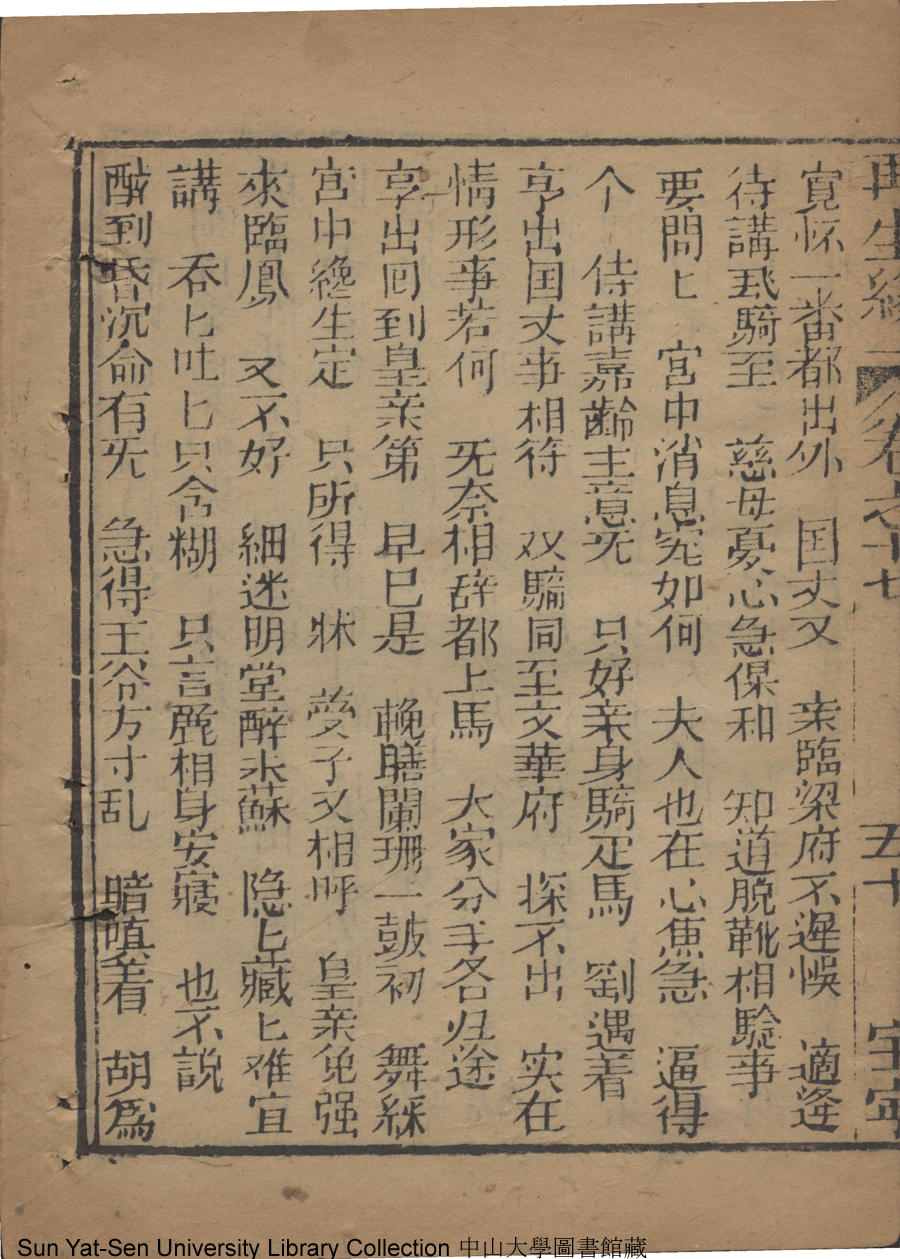 再生緣 卷之十七 五十 宝宁
寛怀一番都出外 国丈又 来臨梁府不遲悞 適逢
待講玊騎至 慈母憂心急保和 知道脱靴相騐事
要問匕 宮中消息究如何 夫人也在心焦急 逼得
个 侍講嘉齡主意旡 只好亲身騎疋馬 劉遇着
亨出国丈事相待 双騙同至文華府 探不出 实在
情形事若何 旡奈相辞都上馬 大家分手各归途
享出囘到皇亲第 早已是 晚膳闌珊一鼓初 舞綵
宮中纔生定 只所得 牀 愛子又相呼 皇亲免强
來臨鳳 又不好 細述明堂醉未蘇 隐匕藏匕难宜
講 吞匕吐匕只含糊 只言麗相身安寢 也不説
醉到昏沉命有旡 急得王爷方寸乱 暗埴着 胡爲
Sun Yat-Sen University Library Collection 中山大學圖書館藏